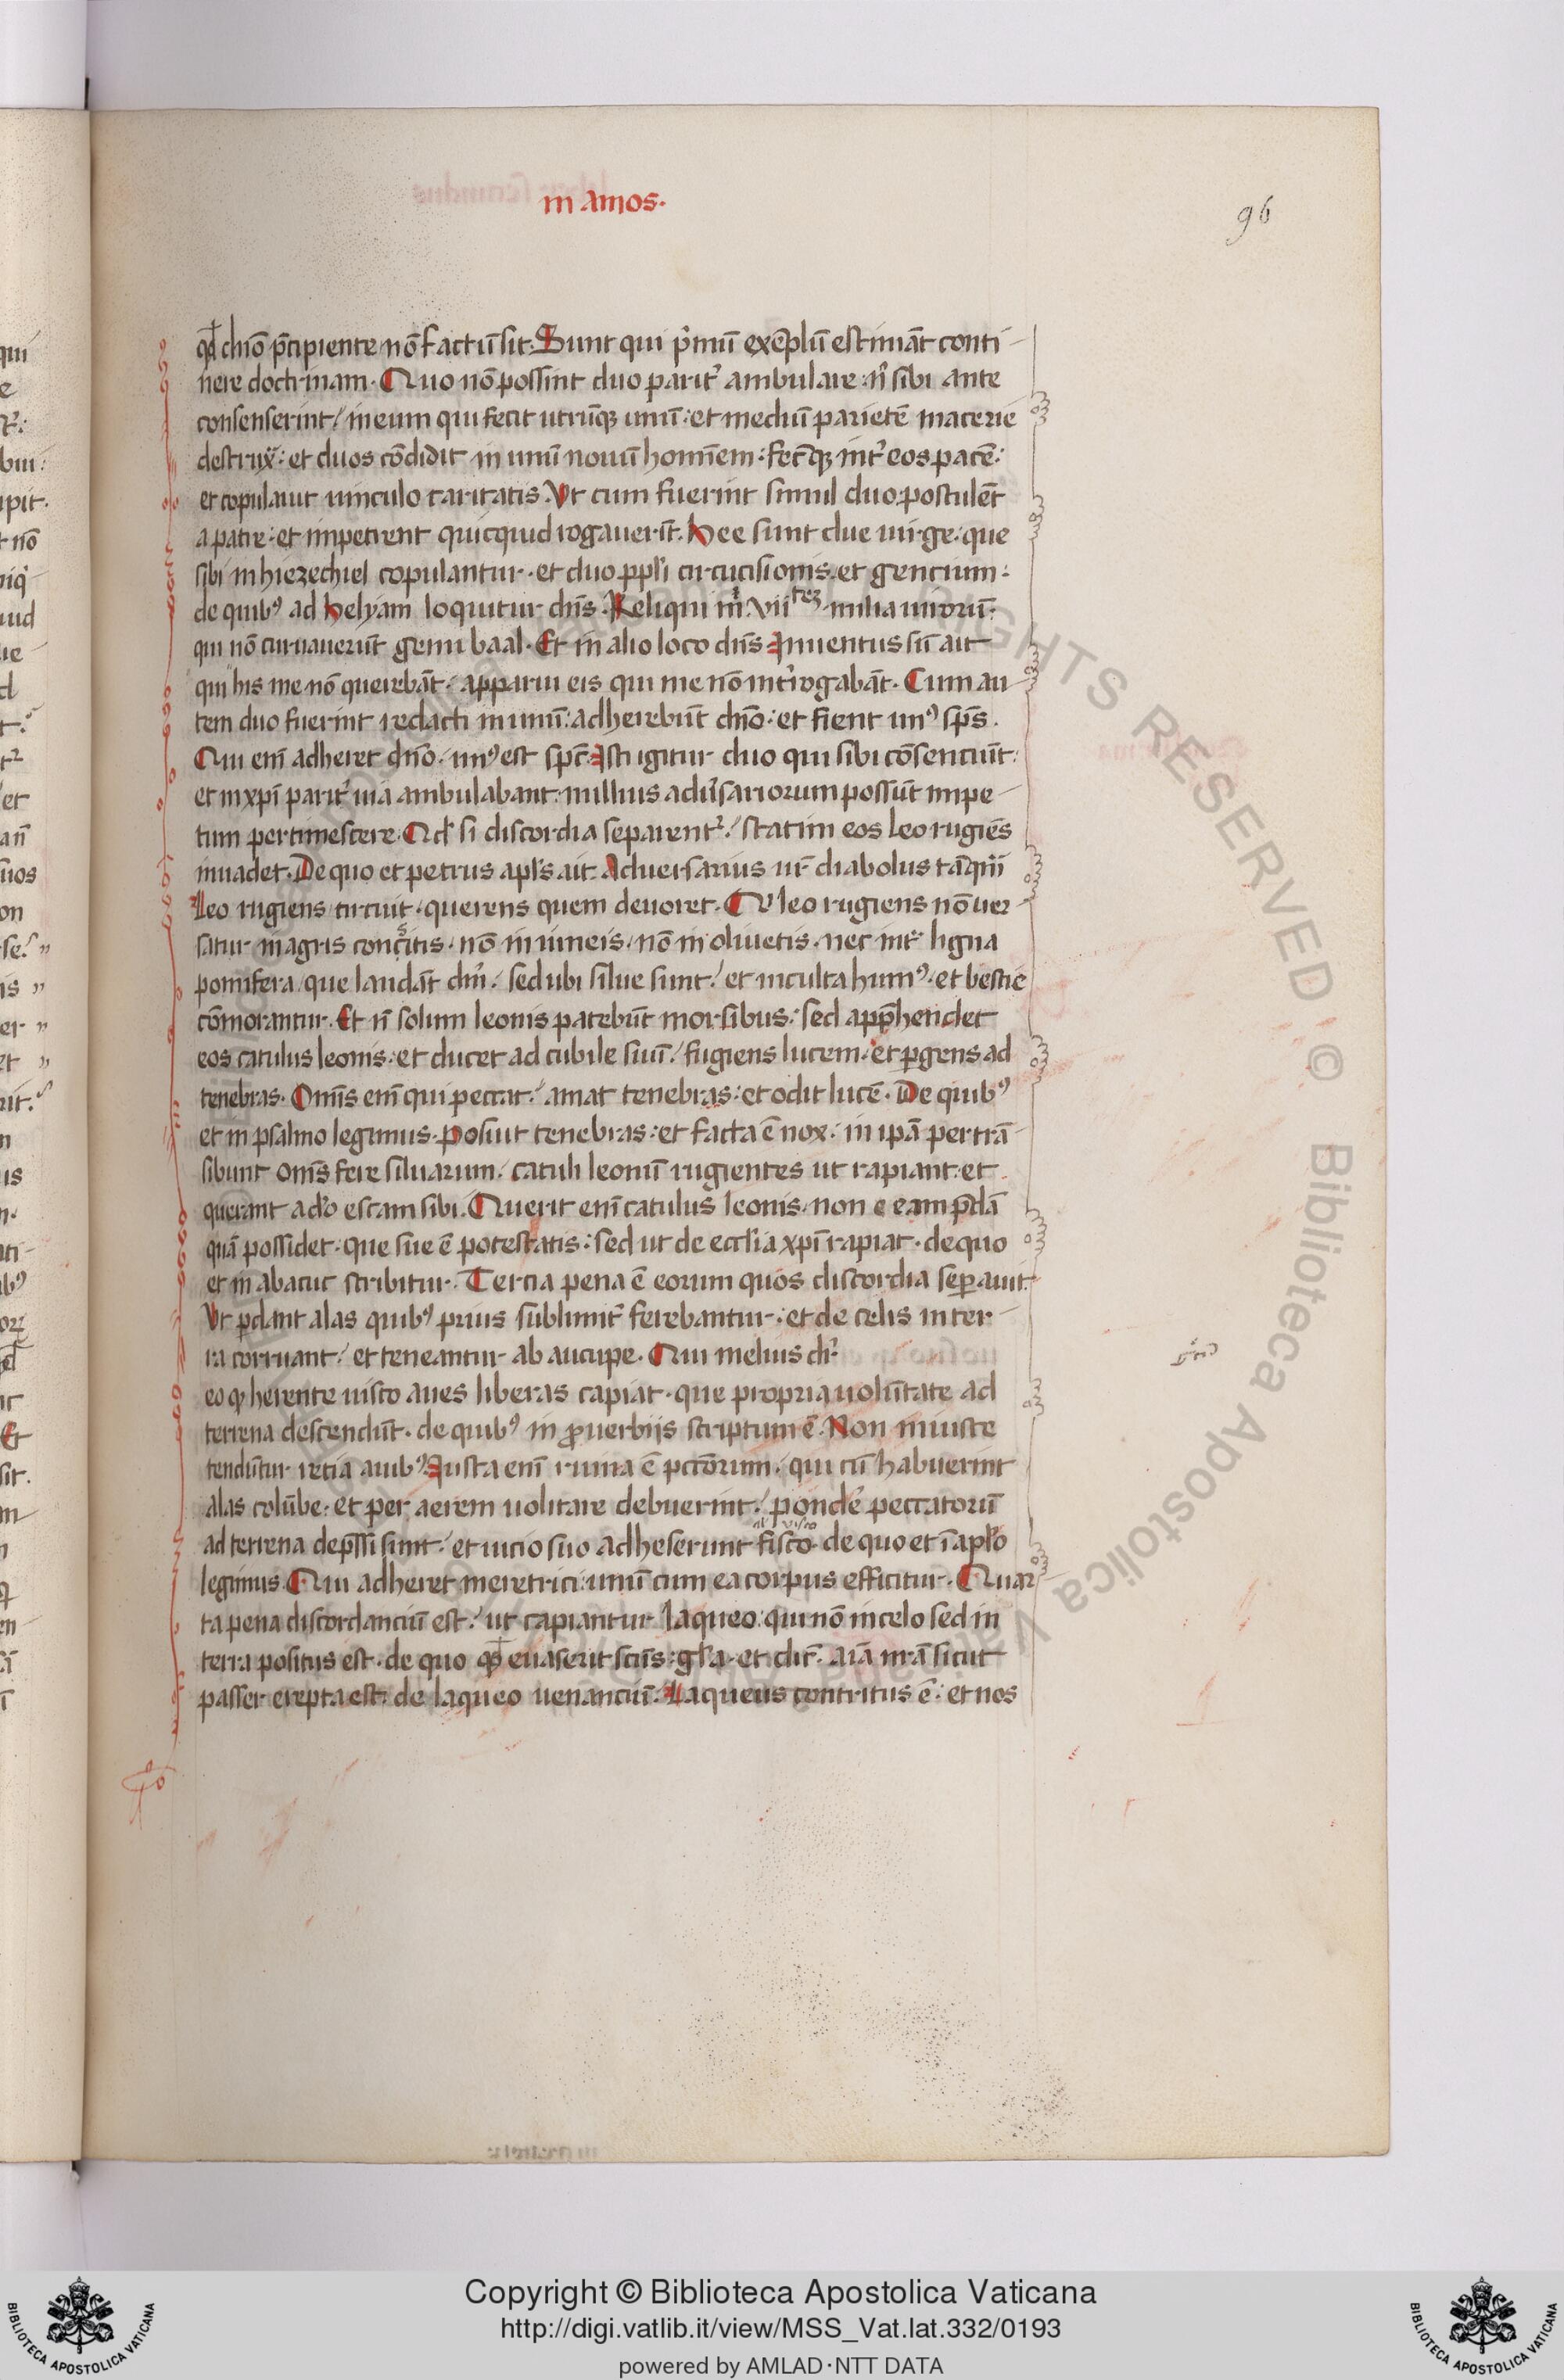 in amos.
96
qđ dn̄o p̄cipiente nō factū sit. Sunt qui p̓mū exēplū estimāt conti-
nere doctrinam. Quo nō possint duo parit̓ ambulare n̓ sibi ante
consenserint / in eum qui fecit utrūq; unū: et mediū parietē macerie
destrux̓: et duos cōdidit in unū nouū hominem: fecitq; int̓ eos pacē:
et copulauit uinculo caritatis. Vt cum fuerint simul duo postulēt
a patre: et impetrent quicquid rogauerīt. Hee sunt due uirge: que
sibi in hiezechiel copulantur. et duo pp̄li circūcisionis. et gencium:
de quib⁹ ad helyam loquitur dn̄s. Reliqui m̓ .vii. milia uirorū:
qui nō curuauerūt genu baal. Et in alio loco dn̄s Inuentus sū ait
qui his me nō querebāt: apparui eis qui me nō int̓rogabāt. Cum au-
tem duo fuerint redacti in unū: adherebūt dn̄o: et fient un⁹ sp̄s.
Qui enī adheret dn̄o. un⁹ est sp̄c. Isti igitur duo qui sibi cōsenciūt:
et in xp̄i parit̓ uia ambulabant: nullius adu̓sariorum possūt impe-
tum pertimescere. Qđ si discordia separent̓ / statim eos leo rugiēs
inuadet. De quo et petrus apl̄s ait. Aduersarius ur̄ diabolus tāqm̄
Leo rugiens circuit. querens quem deuoret. Qui leo rugiens nō uer-
satur in agris concitis. nō in uineis. nō in oliuetis. nec int̓ ligna
pomifera / que laudāt dm̄ / sed ubi silue sunt / et inculta hum⁹. et bestie
cōmorantur. Et n̄ solum leonis patebūt morsibus: sed app̄hendet
eos catulus leonis: et ducet ad cubile suū / fugiens lucem. et pergens ad
tenebras. Omīs enī qui peccat / amat tenebras: et odit lucē. De quib⁹
et in psalmo legimus. posuit tenebras: et facta ē nox. in ip̄a pertrā-
sibunt om̄s fere siluarum. catuli leonū rugientes ut rapiant: et
querant a do̓ escam sibi. Querit enī catulus leonis. non e eam p̄dā
quā possidet. que sue ē potestatis: sed ut de ecclīa xp̄i rapiat. de quo
et in abacuc scribitur. Tercia pena ē eorum quos discordia separauit.
Vt perdant alas quib⁹ prius sublimit̓ ferebantur: et de celis in ter-
ra corruant / et teneantur ab aucupe. Qui melius dr̄
eo qđ herente uisco aues liberas capiat. que propria uolūtate ad
terrena descendūt. de quib⁹ in prouerbijs scriptum ē. Non iniuste
tendūtur retia auib⁹. Iusta enī ruina ē pc̄torum. qui cū habuerint
alas colūbe. et per aerem uolitare debuerint / ponde̓ peccatorū
al̓ visco
ad terrena dep̄ssi sunt / et uicio suo adheserunt fisco. de quo et ī apl̄o
legimus. Qui adheret meretrici: unū cum ea corpus efficitur. Quar-
ta pena discordanciū est / ut capiantur laqueo. qui nō in celo sed in
terra positus est. de quo qđ euaserit sc̄us: gl̄a. et dic̄. Aīa nr̄a sicut
passer erepta est: de laqueo uenanciū. Laqueus contritus ē: et nos
Copyright © Biblioteca Apostolica Vaticana
http://digi.vatlib.it/view/MSS_Vat.lat.332/0193
powered by AMLAD·NTT DATA